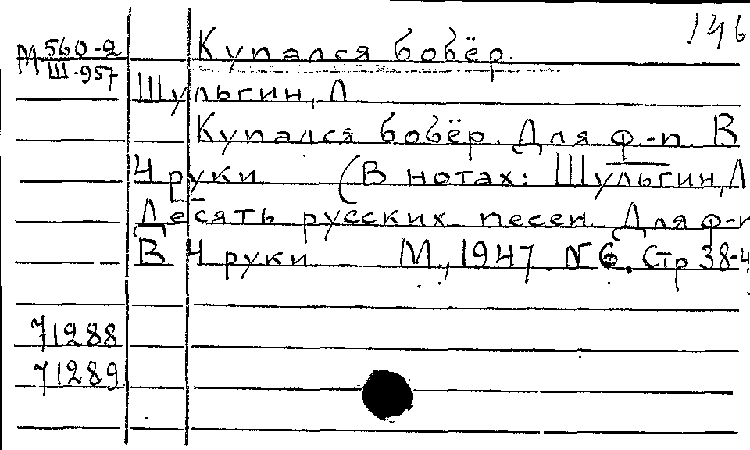 146
М 560-2 Купался бобёр.
Ш-957
Шульгин, Л
Купался бобёр. Для ф-п В
4 руки (В нотах: Шульгин, Л
Десять русских песен. Для ф-п
В 4 руки М., 1947. N 6. Стр 38-4
71288
71289